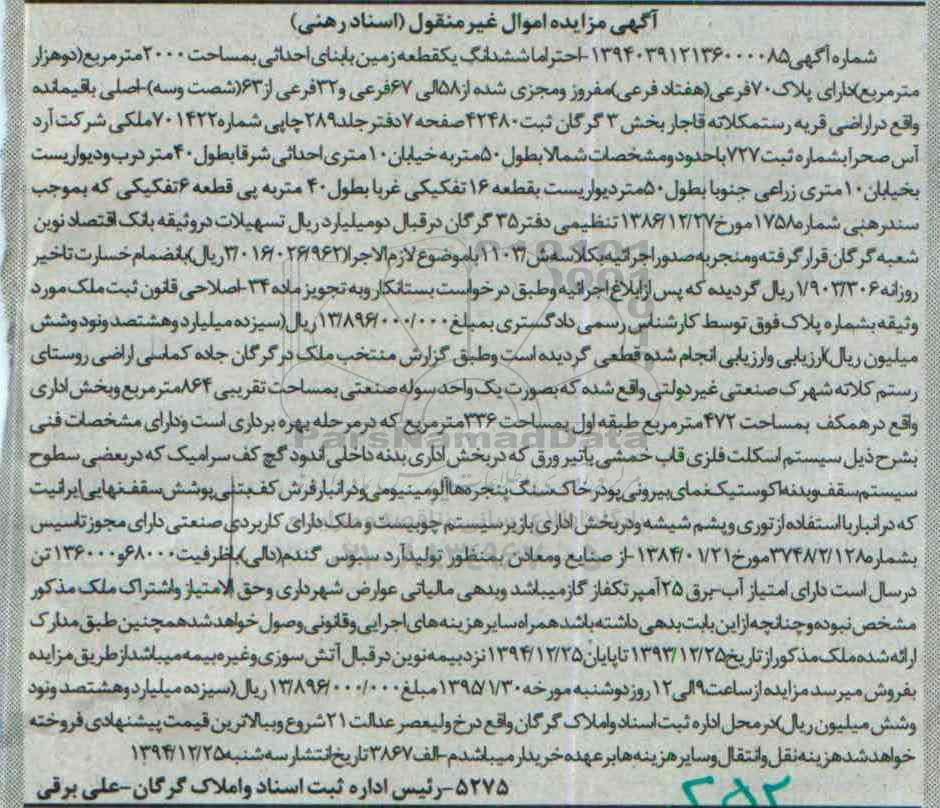 آگهی مزایده اموال غیر منقول (اسناد رهنی)
شماره آگهی ۱۳۹۴۰۳۹۱۲۱۳۶۰۰۰۰۸۵-احتراما ششدانگ یکقطعه زمین بابنای احداثی بمساحت ۲۰۰۰مترمربع(دوهزار
مترمربع)دارای پلاک ۷۰فرعی(هفتاد فرعی)مفروز ومجزی شده از۵۸الی ۶۷فرعی و۳۲فرعی از۶۳(شصت وسه)-اصلی باقیمانده
واقع دراراضی قریه رستمکلاته قاجار بخش ۳ گرگان ثبت۴۲۴۸۰صفحه ۷دفتر جلد۲۸۹چاپی شماره۷۰۱۴۲۲ملکی شرکت آرد
آس صحرا بشماره ثبت۷۲۷باحدود ومشخصات شمالا بطول ۵۰متربه خیابان ۱۰متری احداثی شرقا بطول ۴۰متر درب ودیواریست
بخیابان ۱۰متری زراعی جنوبا بطول ۵۰متردیواریست بقطعه ۱۶ تفکیکی غربا بطول ۴۰ متربه پی قطعه ۶تفکیکی که بموجب
سندرهنی شماره۱۷۵۸مورخ۱۳۸۶/۱۲/۲۷ تنظیمی دفتر۳۵ گرگان درقبال دومیلیارد ریال تسهیلات دروثیقه بانک اقتصاد نوین
شعبه گرگان قرار گرفته ومنجر به صدوراجرائیه بکلاسه ش/۱۱۰۳ باموضوع لازم الاجرا(۳/۰۱۶/۰۲۶/۹۶۲ریال)بانضمام خسارت تاخیر
روزانه ۱/۹۰۳/۳۰۶ ریال گردیده که پس ازابلاغ اجرائیه وطبق درخواست بستانکار وبه تجویز ماده ۳۴-اصلاحی قانون ثبت ملک مورد
وثیقه بشماره پلاک فوق توسط کارشناس رسمی دادگستری بمبلغ ۱۳/۸۹۶/۰۰۰/۰۰۰ریال(سیزده میلیارد وهشتصد ونود وشش
میلیون ریال)ارزیابی وارزیابی انجام شده قطعی گردیده است وطبق گزارش منتخب ملک در گرگان جاده کماسی اراضی روستای
رستم کلاته شهرک صنعتی غیردولتی واقع شده که بصورت یک واحد سوله صنعتی بمساحت تقریبی ۸۶۴مترمربع وبخش اداری
واقع درهمکف بمساحت ۴۷۲مترمربع طبقه اول بمساحت ۳۳۶مترمربع که درمرحله بهره برداری است ودارای مشخصات فنی
بشرح ذیل سیستم اسکلت فلزی قاب خمشی باتیر ورق که دربخش اداری بدنه داخلی اندود گچ کف سرامیک که دربعضی سطوح
سیستم سقف وبدنه اکوستیک نمای بیرونی پودر خاک سنگ پنجره ها آلومینیومی ودرانبار فرش کف بتنی پوشش سقف نهایی ایرانیت
که درانبار با استفاده از توری و پشم شیشه ودر بخش اداری باز یر سیستم چوبیست و ملک دارای کاربردی صنعتی دارای مجوز تاسیس
بشماره۳۷۴۸/۲/۱۲۸مورخ۱۳۸۴/۰۱/۲۱-از صنایع ومعادن بمنظور تولیدآرد سبوس گندم(دالی)باظرفیت۶۸۰۰۰و۱۳۶۰۰۰ تن
درسال است دارای امتیاز آب-برق ۲۵آمپر تکفاز گاز میباشد وبدهی مالیاتی عوارض شهرداری وحق الامتیاز واشتراک ملک مذکور
مشخص نبوده وچنانچه ازاین بابت بدهی داشته باشد همراه سایر هزینه های اجرایی وقانونی وصول خواهد شد همچنین طبق مدارک
ارائه شده ملک مذکور از تاریخ۱۳۹۳/۱۲/۲۵ تاپایان ۱۳۹۴/۱۲/۲۵ نزد بیمه نوین درقبال آتش سوزی وغیره بیمه میباشد از طریق مزایده
بفروش میرسد مزایده از ساعت۹الی۱۲ روز دوشنبه مورخه ۱۳۹۵/۱/۳۰ مبلغ ۱۳/۸۹۶/۰۰۰/۰۰۰ ریال(سیزده میلیارد وهشتصد ونود
وشش میلیون ریال)درمحل اداره ثبت اسناد واملاک گرگان واقع درخ ولیعصر عدالت ۲۱شروع وببالاترین قیمت پیشنهادی فروخته
خواهد شد هزینه نقل وانتقال وسایر هزینه ها برعهده خریدار میباشد م-الف ۳۸۶۷ تاریخ انتشار سه شنبه ۱۳۹۴/۱۲/۲۵
۵۲۷۵-رئیس اداره ثبت اسناد واملاک گرگان-علی برقی
ParsNamadData